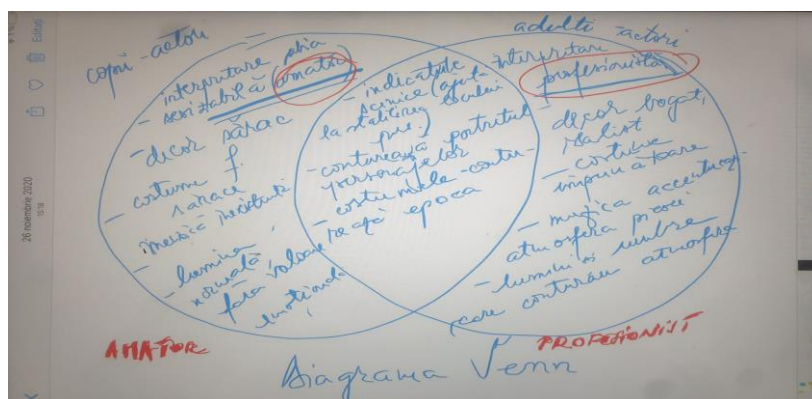 Editați
26 noiembrie 2020
15:18
copii-actori
- interpretare
abia
sesizabilă (amatori)
- decor sărac
- costume f.
sărace
- muzică inexistentă
- lumina
normală
fără valoare
emoțională
- indicațiile
scenice (ajută
la stabilirea
- conturează portretul
personajelor
- costumele contu-
rează epoca
adulți-actori
interpretare
profesionistă
decor bogat,
realist
- costume
impunătoare
- muzica accentuează
atmosfera piesei
- lumini și umbre
care conturau atmosfera
AMATOR
PROFESIONIST
Diagrama Venn